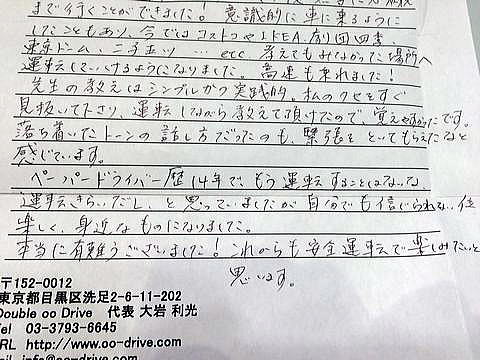 まで行くことができました! 意識的に車に乗るように
したこともあり、今ではコストコ、IKEA、劇団四季
東京ドーム、二子玉 … etc 考えてもみなかった場所へ
運転していけるようになりました。高速も乗れました!
先生の教えはシンプルかつ実践的。私のクセをすぐ
見抜いて下さり、運転しながら教えて頂けたので、覚えやすかったです。
落ち着いたトーンの話し方だったのも、緊張をといてもらえたなと
感じています。
ペーパードライバー歴14年で、もう運転することはないな
運転きらいだし、と思っていましたが自分でも信じられない位
楽しく、身近なものになりました。
本当に有難うございました! これからも安全運転で楽しみたいと
思います。
〒152-0012
東京都目黒区洗足2-6-11-202
Double oo Drive 代表 大岩 利光
Tel 03-3793-6645
URL http://www.oo-drive.com
mail info@oo-drive.com